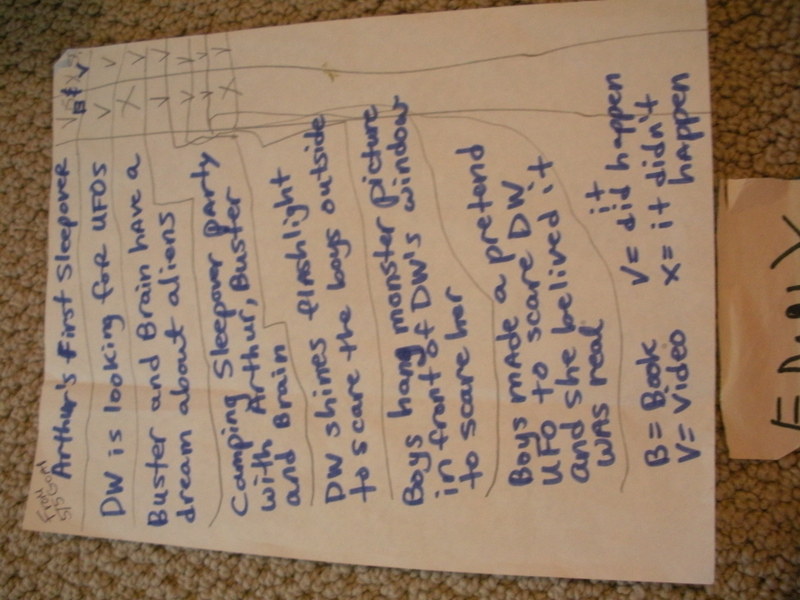 Arthur's First Sleepover B V
DW is looking for UFOs V V
Buster and Brain have a X V
dream about aliens V V
V V
Camping Sleepover party V V
with Arthur, Buster X V
and Brain
DW shines flashlight
to scare the boys outside
Boys hang monster picture
in front of DW's window
to scare her
Boys made a pretend
UFO to scare DW
and she belived it
was real
it
V= did happen
B= Book X= it didn't
V= Video happen